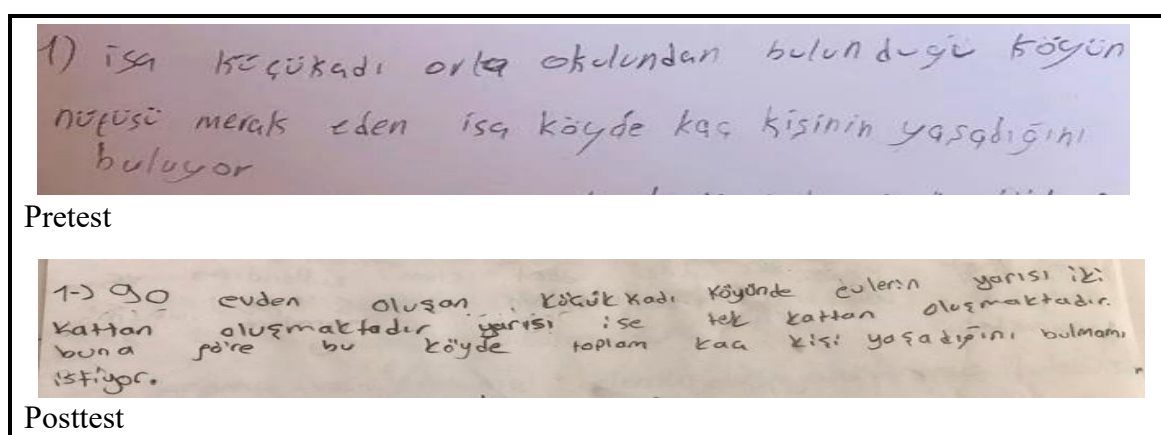 1) isa küçükadı orta okulundan bulunduğu köyün
nüfusü merak eden isa köyde kaç kişinin yaşadığını
buluyor
Pretest
1-) 90 evden oluşan küçük kadı köyünde evlerin yarısı iki
kattan oluşmaktadır yarısı ise tek kattan oluşmaktadır.
buna göre bu köyde toplam kaç kişi yaşadığını bulmamı
istiyor.
Posttest